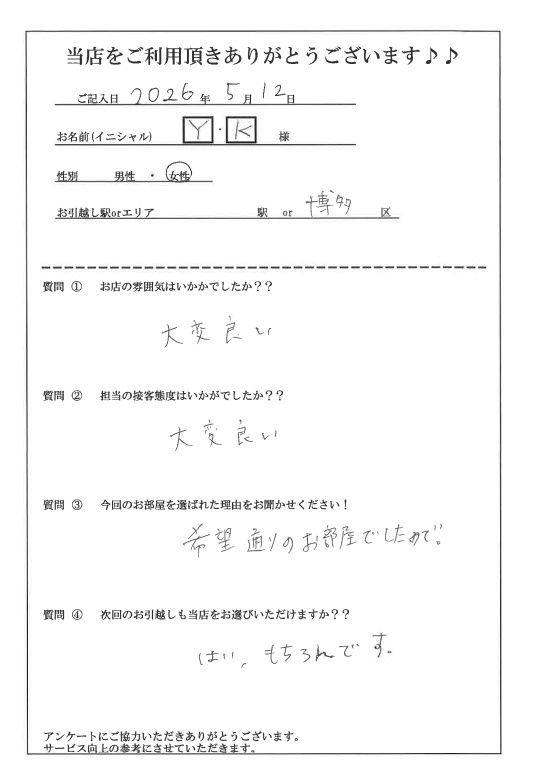 当店をご利用頂きありがとうございます♪♪
ご記入日 2026年 5月 12日
お名前(イニシャル) Y・K 様
性別 男性 ・ 女性
お引越し駅orエリア 駅 or 博多 区
質問 ① お店の雰囲気はいかかでしたか??
大変良い
質問 ② 担当の接客態度はいかがでしたか??
大変良い
質問 ③ 今回のお部屋を選ばれた理由をお聞かせください!
希望通りのお部屋でしたので。
質問 ④ 次回のお引越しも当店をお選びいただけますか??
はい、もちろんです。
アンケートにご協力いただきありがとうございます。
サービス向上の参考にさせていただきます。